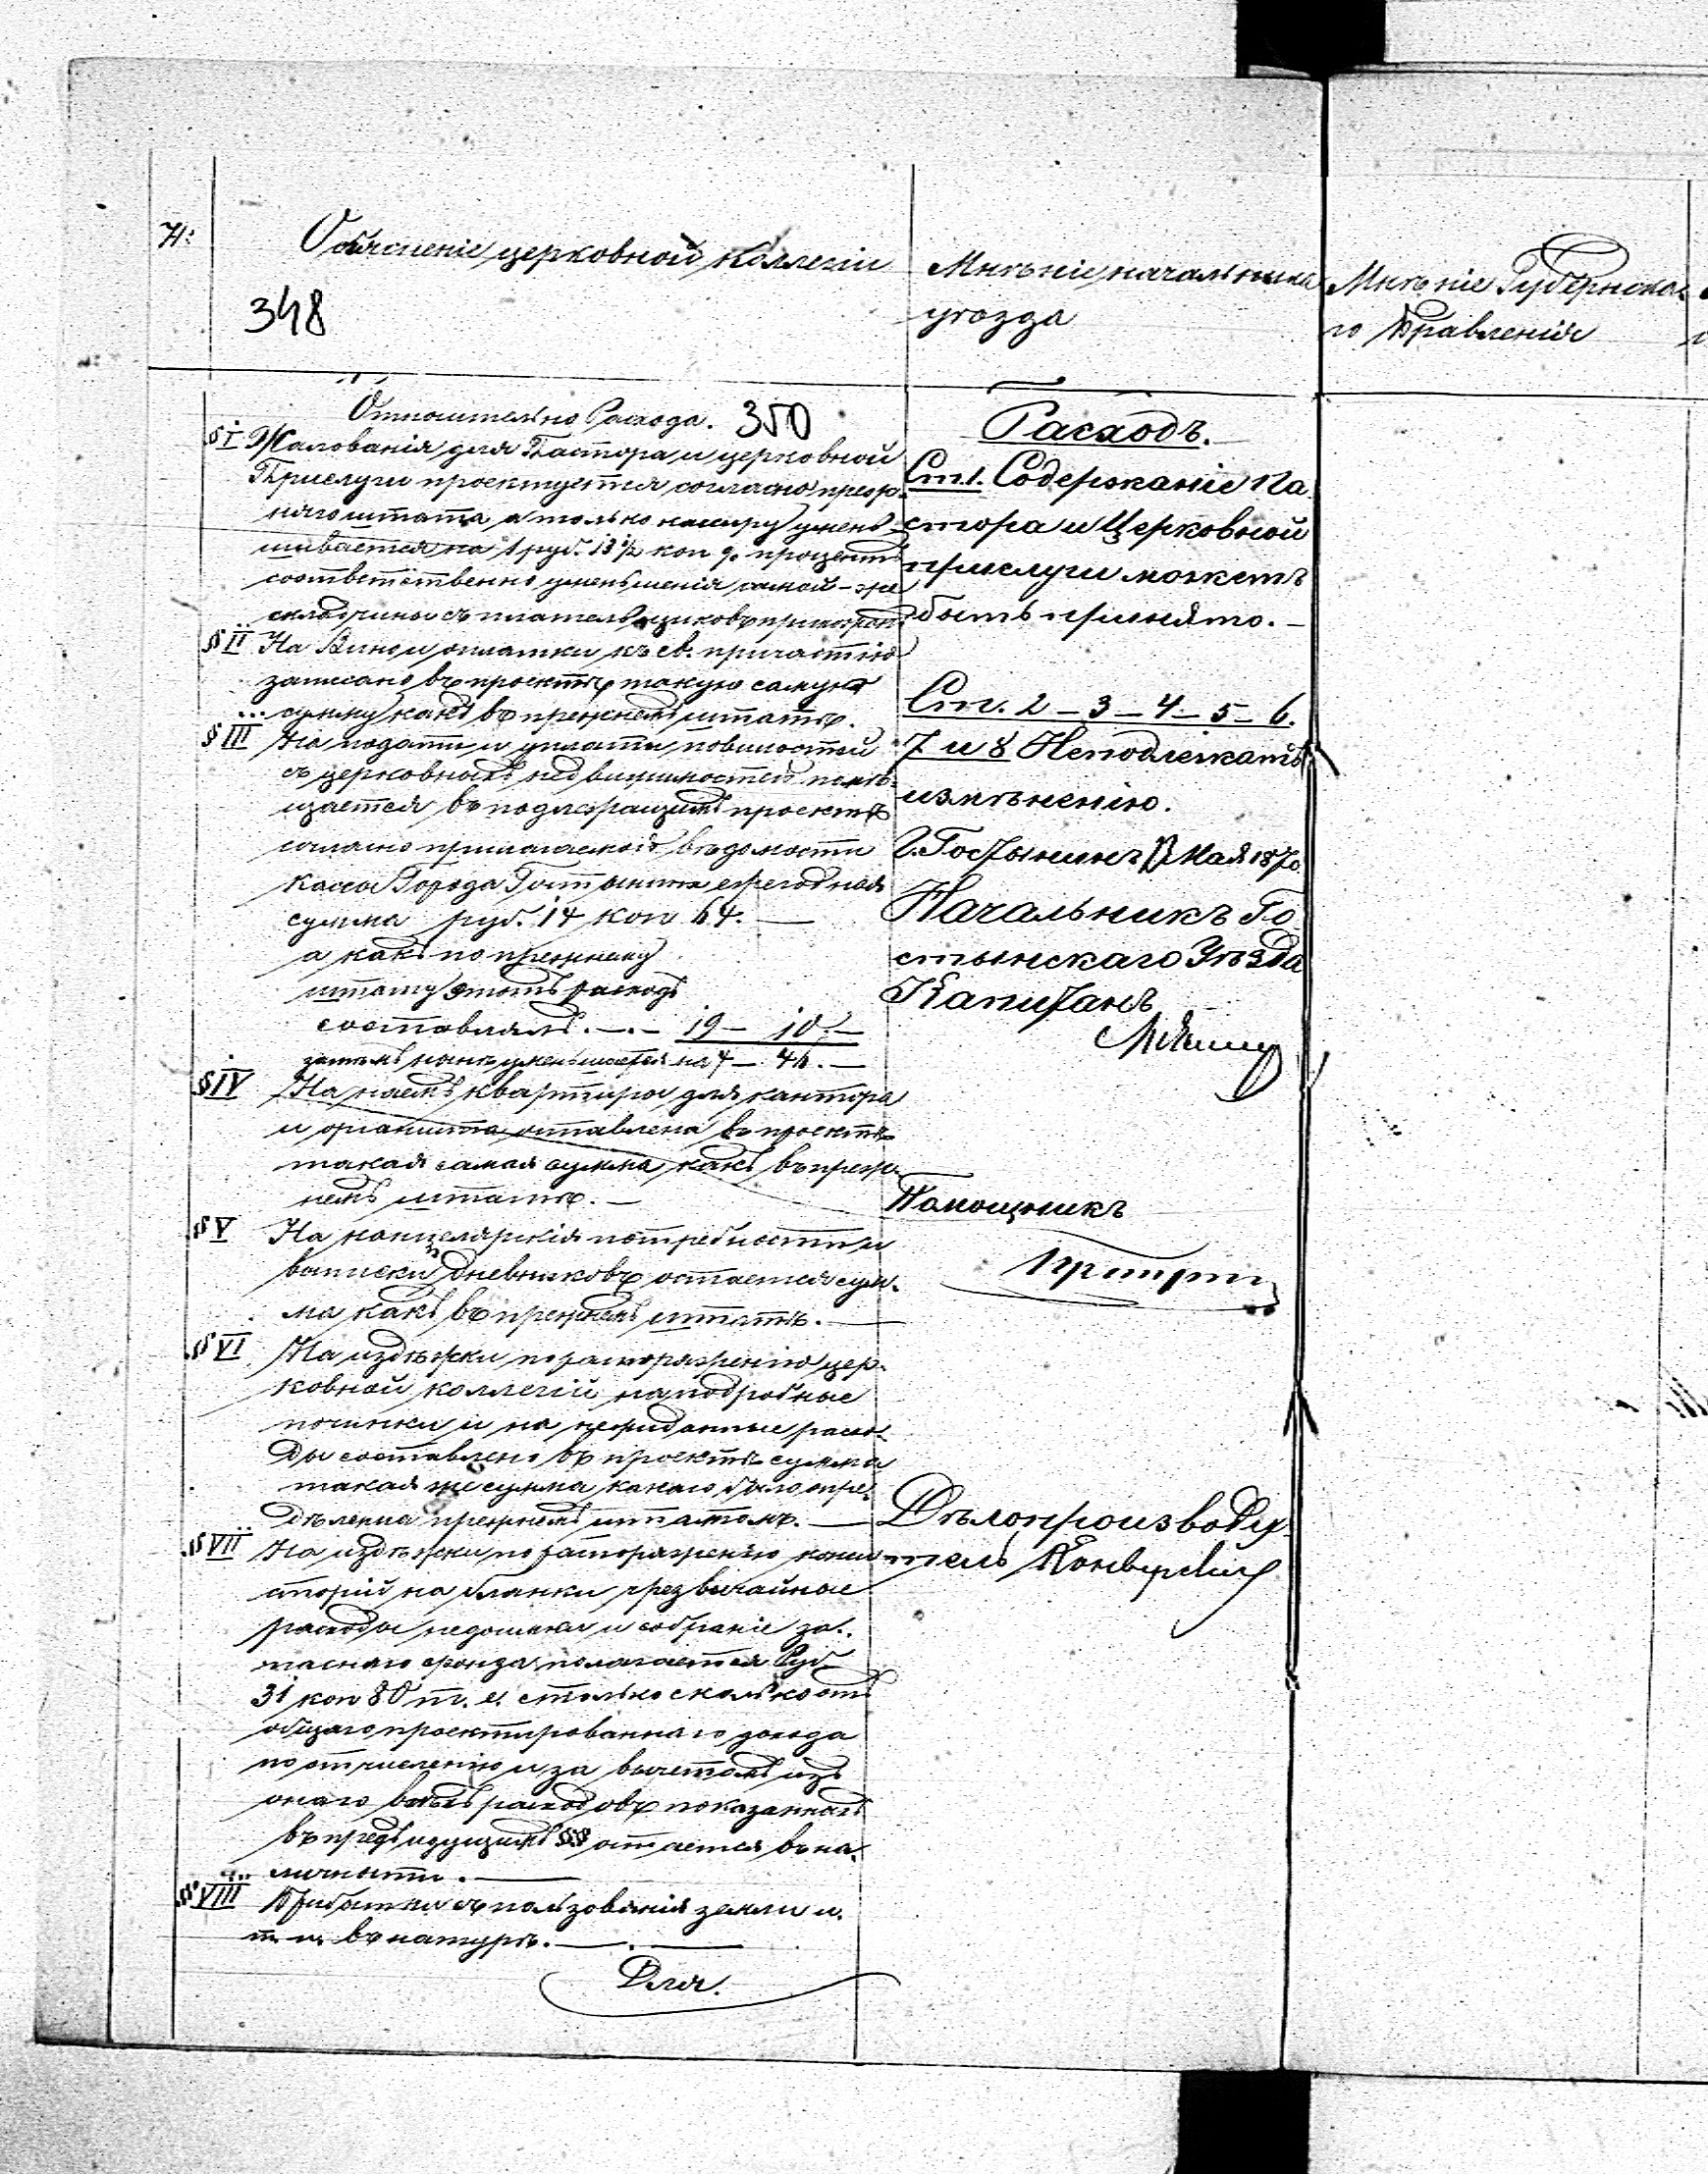 Н:
Объясненіе церковной коллегіи
348
Мнѣніе начальника
уѣзда
Мнѣніе Губернска-
го Правленія
Относительно Расхода. 350
§ I Жалованія для Пастора и церковной
Прислуги проектуется согласно преж-
няго штата а только кассиру умень-
шивается на 1 руб. 13 ½ коп процентъ
соотвѣтственно уменьшенія самой-же
складчины съ плательщиковъ прихожанъ
§ II На Вино и оплатки къ св. причастію
записано въ проектѣ такую самую
сумму какъ въ прежнемъ штатѣ.
§ III На подати и уплаты повинностей
съ церковныхъ недвижимостей помѣ-
щается въ подлежащемъ проектѣ
согласно прилагаемой вѣдомости
Кассы Города Гостынина ежегодная
сумма руб. 14 коп 64. —
а какъ по прежнему
штату этотъ расходъ
составлялъ. —.— 19 — 10. —
затѣмъ нынѣ уменьшается на 4 — 46. —
§ IV На наемъ квартиры для кантора
и органиста оставлена въ проектѣ
такая самая сумма какъ въ преж-
немъ штатѣ. —
§ V На канцелярскія потребности и
выписки дневниковъ остается сум-
ма какъ въ прежнемъ штатѣ. —
§ VI На издѣржки по распоряженію цер-
ковной коллегіи на подробные
починки и на непридвиданные расхо-
ды составлено въ проектѣ сумма
такая же сумма какаго было опре-
дѣленна прежнемъ штатомъ. —
§ VII На издѣржки по распоряженію конси-
сторіи на бланки чрезвычайные
расходы недоимки и собраніе за-
паснаго фонда полагается Руб
31 коп 80 т. е. столько сколько отъ
общаго проектированнаго дохода
по отчисленію и за вычетомъ изъ
онаго всѣхъ расходовъ показанныхъ
въ предъидущихъ §§ остается въ на-
личности. —
§ VIII Прибытки съ пользованія земли и
т. п. въ натурѣ. —. —
Для.
Расходъ.
Ст. 1. Содержаніе Па
стора и Церковной
прислуги можетъ
быть принято. —
Ст. 2 — 3 — 4 — 5 — 6.
7 и 8 Неподлежатъ
измѣненію.
Г. Гостынинъ Мая 1870
Начальникъ Го
стынскаго Уѣзда
Капитанъ
Помощникъ
Дѣлопроизводи
тель